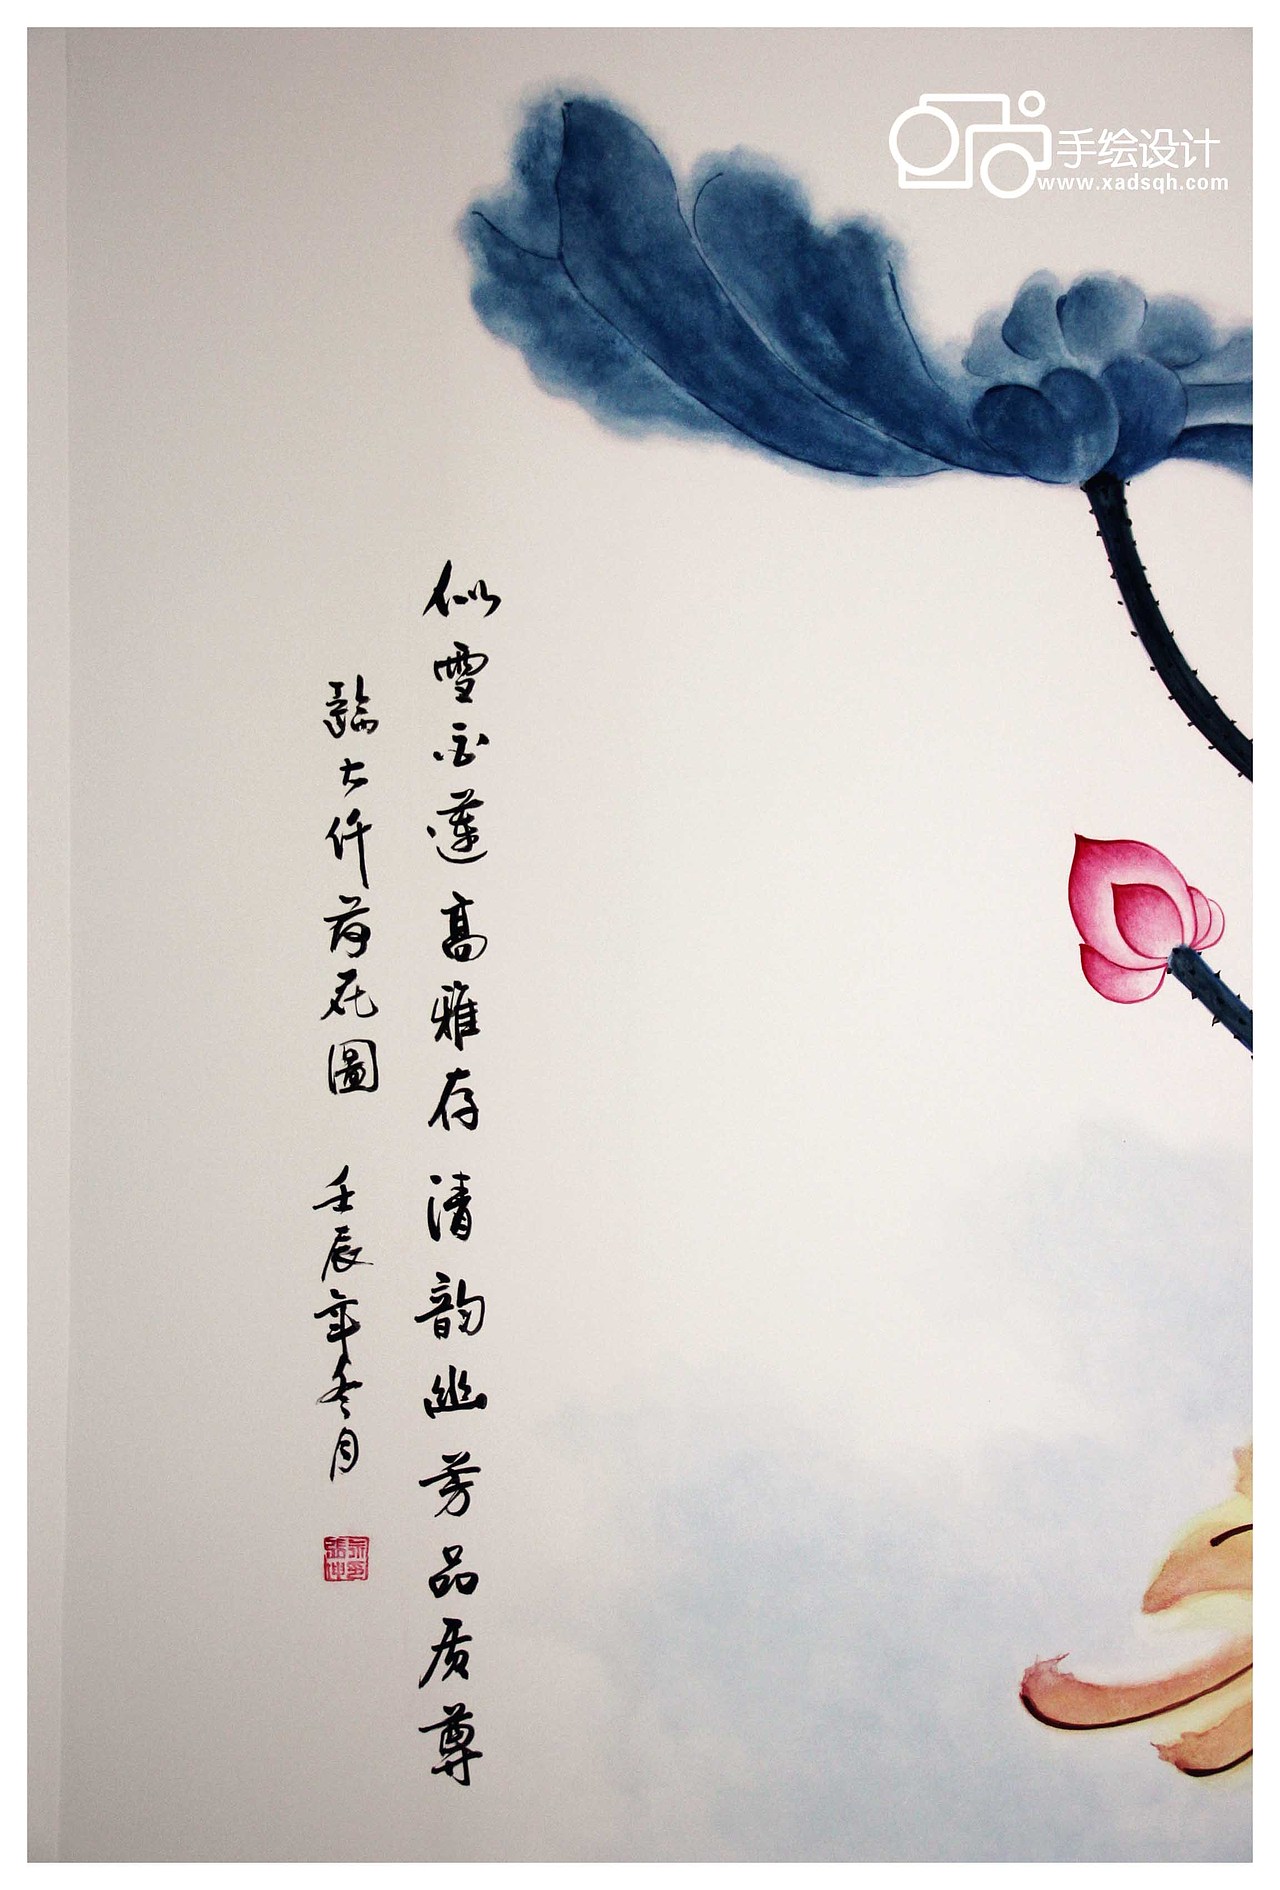 手绘设计
www.xadsqh.com
似雪白莲高雅存清韵幽芳品质尊
临大仟荷花圖 壬辰年冬月